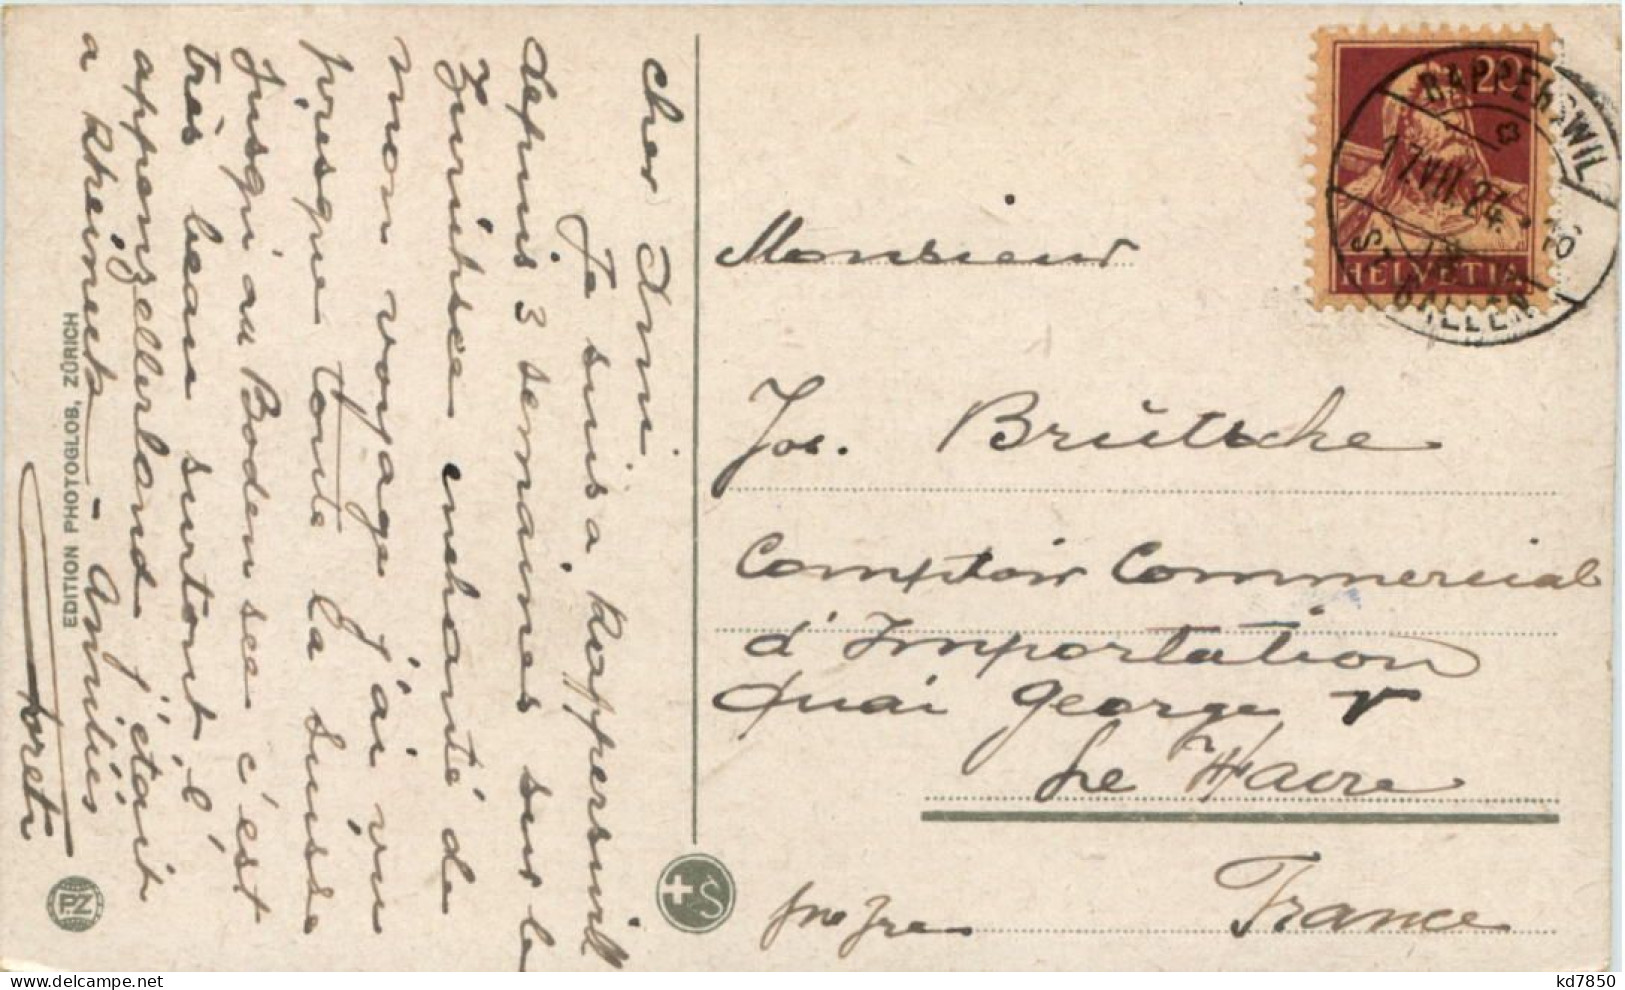 cher Ami
Je suis a Rapperswill
depuis 3 semaines sur le
Zurichsee enchanté de
mon voyage j'ai vu
presque toute la Suisse
jusqu'au Bodensee c'est
très beau surtout l'
appenzellerland j'était
a Rheineck - Amitiés
EDITION PHOTOGLOB, ZÜRICH
PZ
HELVETIA
20
RAPPERSWIL
17.VII.24.
ST. GALLEN
Monsieur
Jos. Brütsche
Comptoir Commercial
d'Importation
Quai George V
Le Havre
France
kd7850